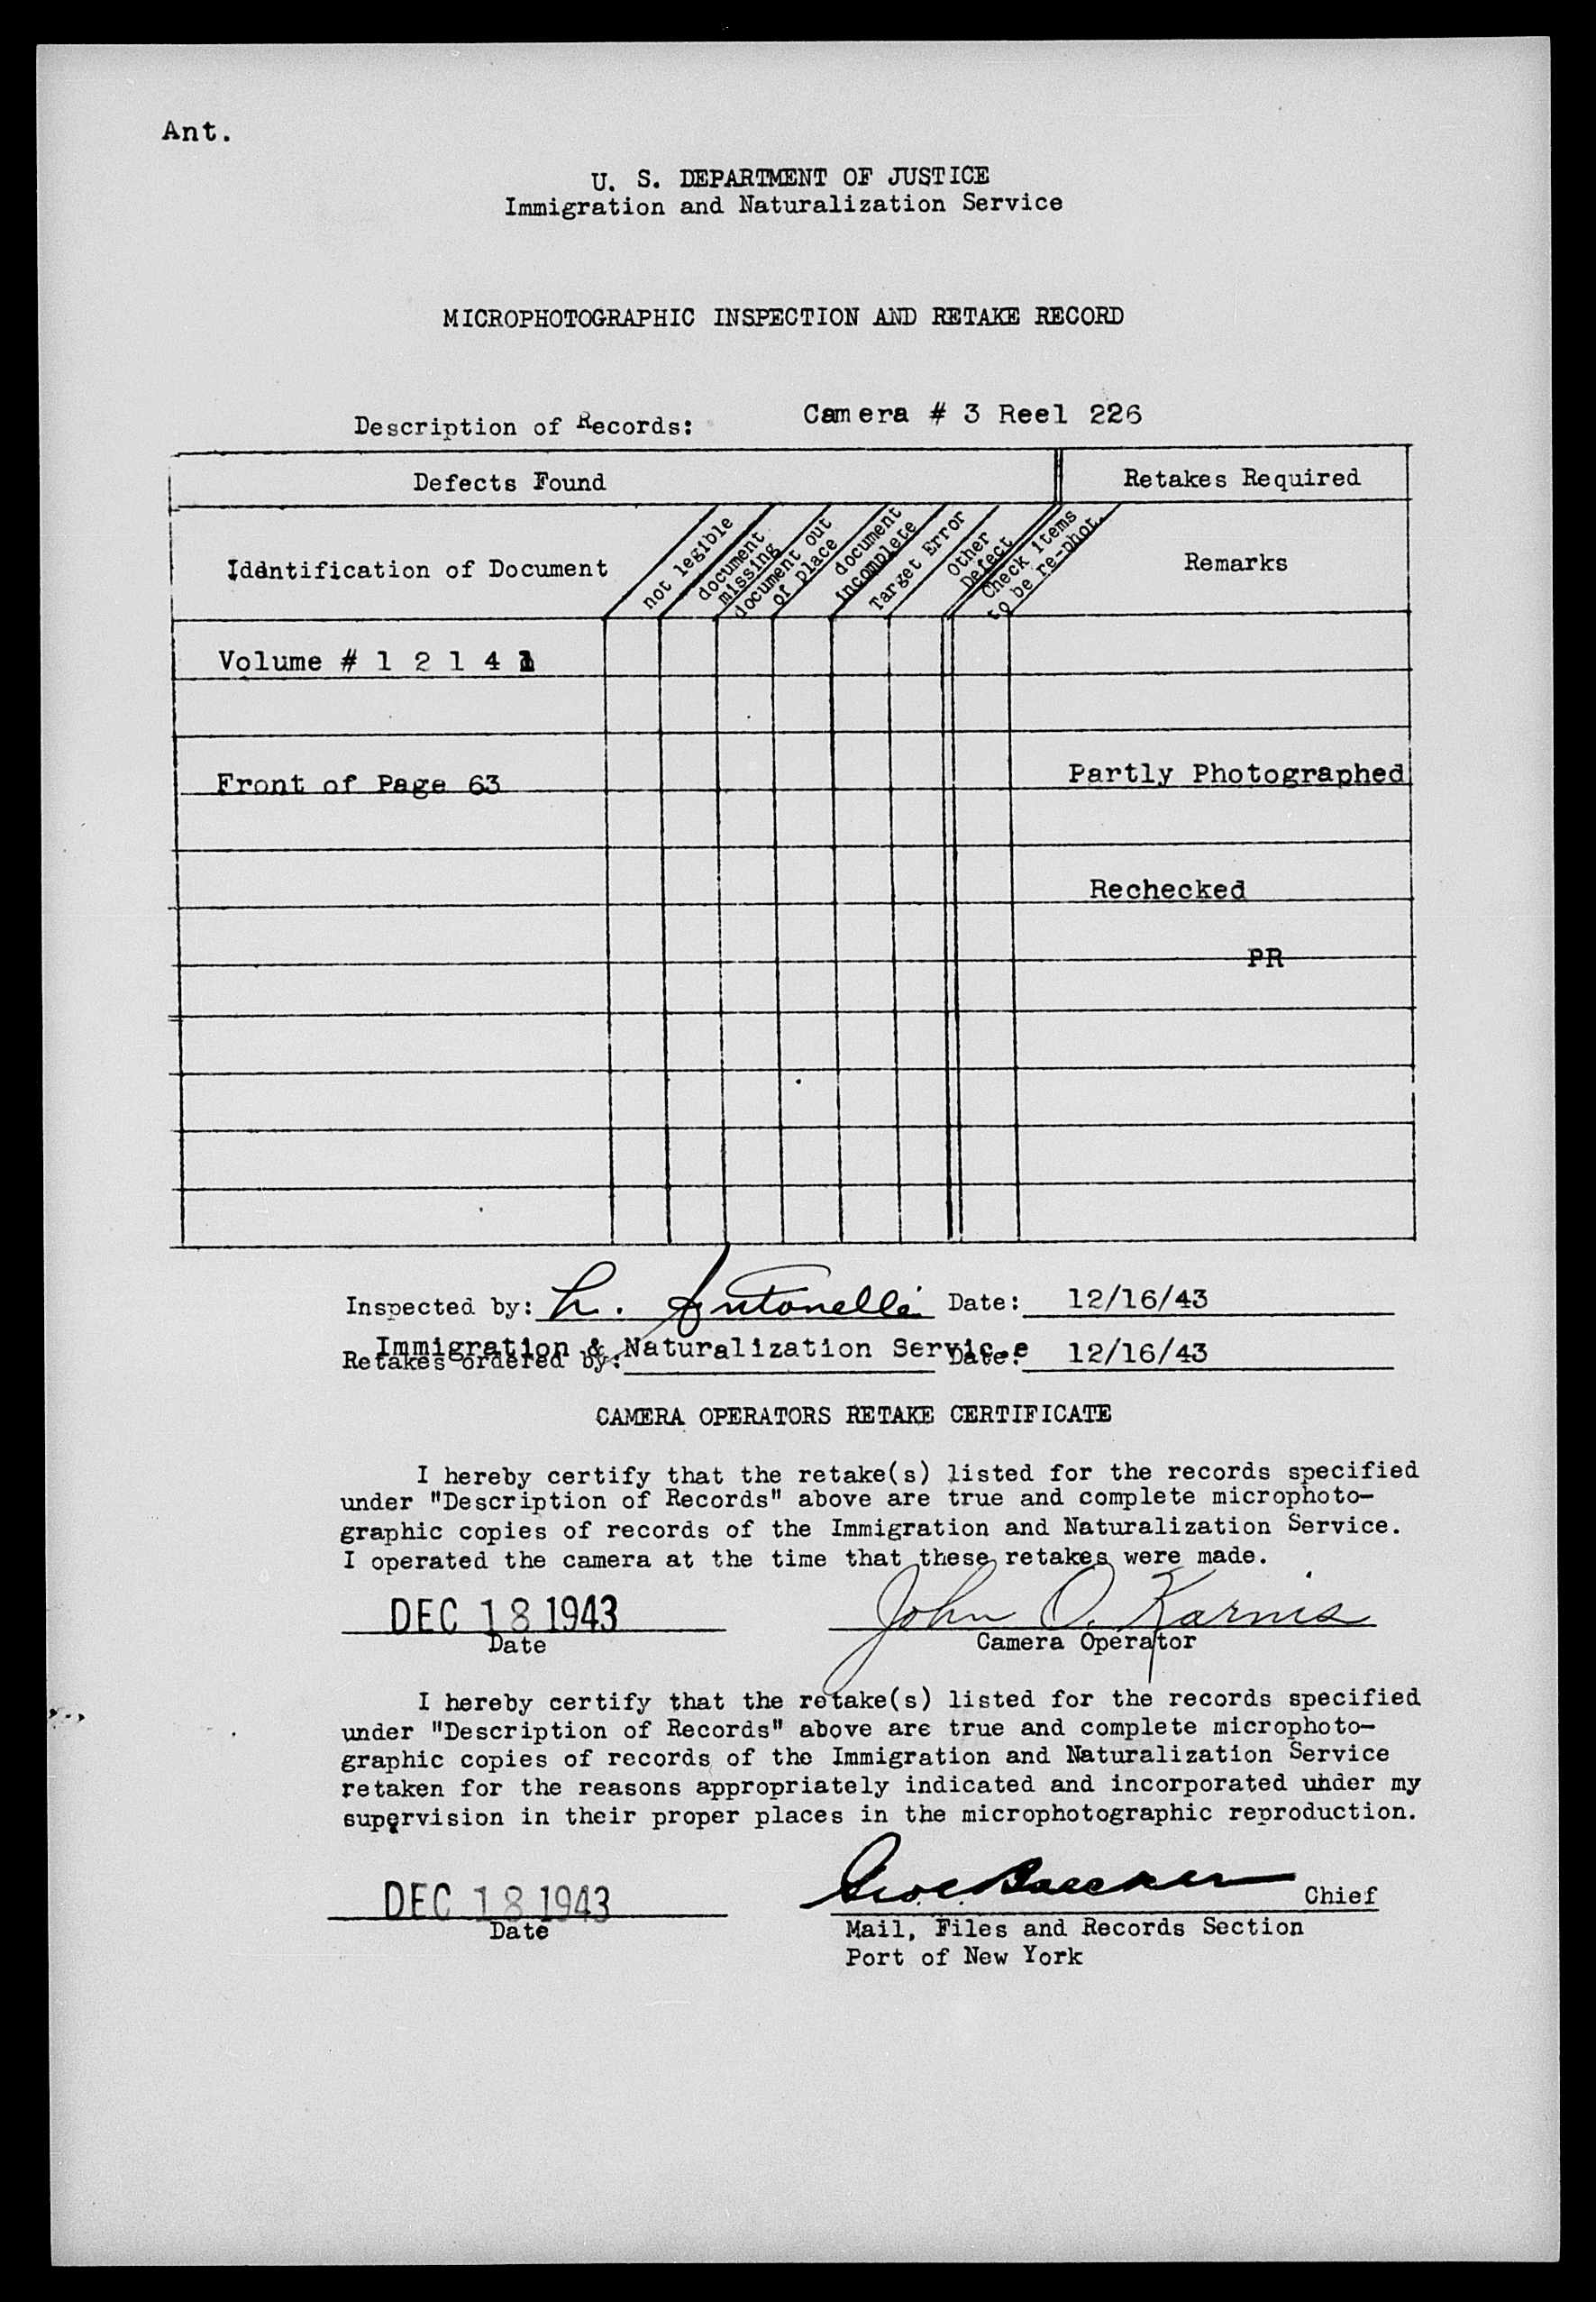 Ant.
U. S. DEPARTMENT OF JUSTICE
Immigration and Naturalization Service
MICROPHOTOGRAPHIC INSPECTION AND RETAKE RECORD
Description of Records: Camera # 3 Reel 226
Defects Found Retakes Required
Iddntification of Document
not legible
document missing
document out of place
document incomplete
Target Error
Other Defect
Check items to be re-phot.
Remarks
Volume # 1 2 1 4 1
Front of Page 63 Partly Photographed
Rechecked
PR
Inspected by: L. Antonelli Date: 12/16/43
Immigration & Naturalization Servic.e
Retakes ordered by: Date: 12/16/43
CAMERA OPERATORS RETAKE CERTIFICATE
I hereby certify that the retake(s) listed for the records specified
under "Description of Records" above are true and complete microphoto-
graphic copies of records of the Immigration and Naturalization Service.
I operated the camera at the time that these retakes were made.
DEC 18 1943 John O. Karnis
Date Camera Operator
I hereby certify that the retake(s) listed for the records specified
under "Description of Records" above are true and complete microphoto-
graphic copies of records of the Immigration and Naturalization Service
retaken for the reasons appropriately indicated and incorporated uhder my
supervision in their proper places in the microphotographic reproduction.
DEC 18 1943 Chief
Date Mail, Files and Records Section
Port of New York